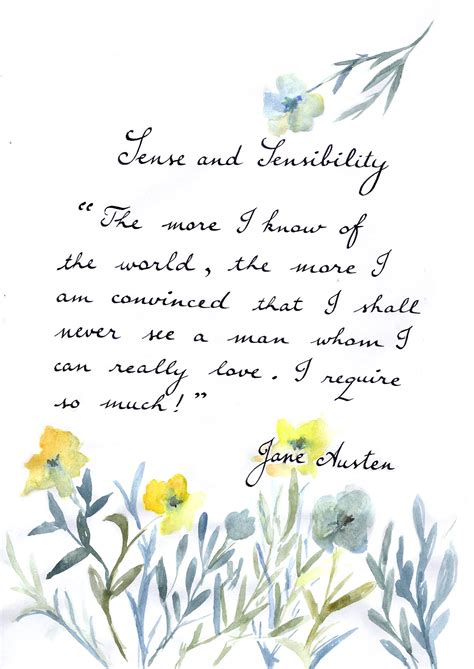 Sense and Sensibility
"The more I know of
the world, the more I
am convinced that I shall
never see a man whom I
can really love. I require
so much!"
Jane Austen